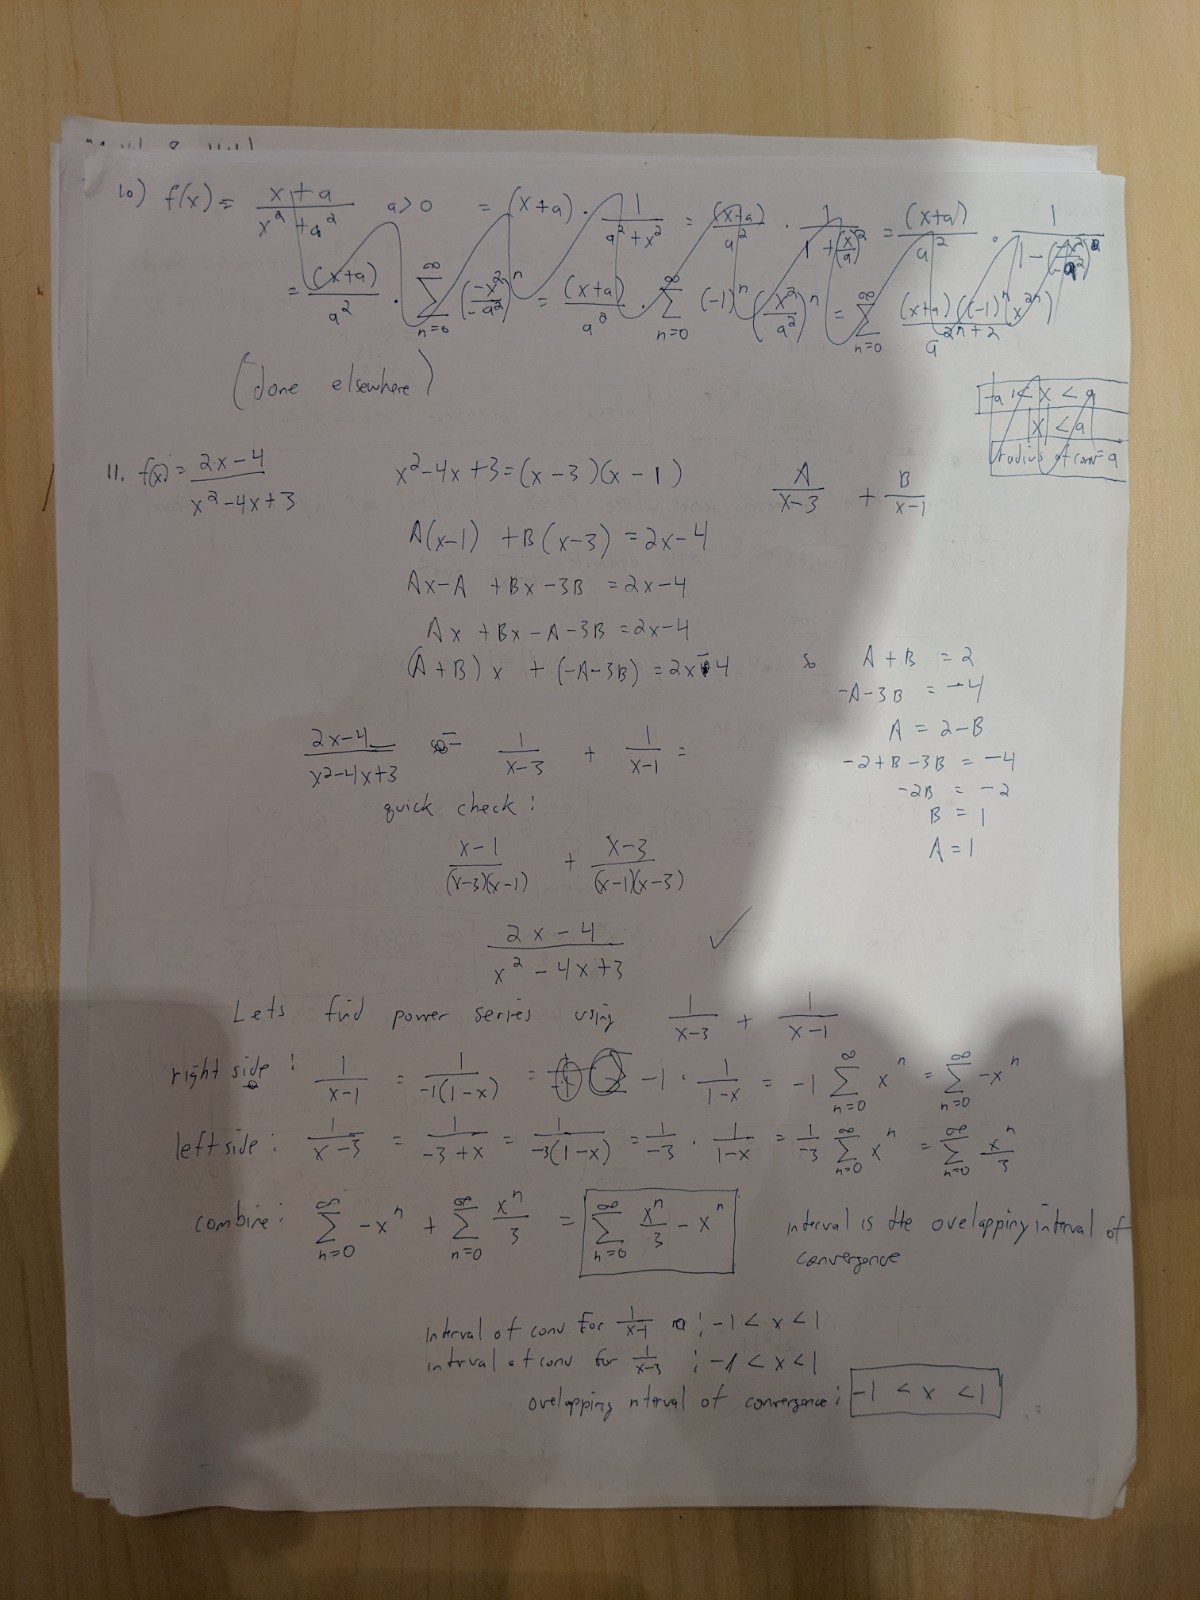 10) f(x) = (x+a)/(x²+a²) a>0 = (x+a) · 1/(a²+x²) = (x+a)/a² · 1/(1+(x/a)²) = (x+a)/a² · 1/(1-(-x²/a²))
= (x+a)/a² · ∞Σn=0 (-x²/-a²)ⁿ = (x+a)/a² · ∞Σn=0 (-1)ⁿ (x²/a²)ⁿ = ∞Σn=0 (x+a)((-1)ⁿ(x²ⁿ))/a²ⁿ⁺²
(done elsewhere)
-a < x < a
|x| < a
radius of conv = a
11. f(x) = (2x-4)/(x²-4x+3) x²-4x+3=(x-3)(x-1) A/(x-3) + B/(x-1)
A(x-1) + B(x-3) = 2x-4
Ax-A + Bx-3B = 2x-4
Ax + Bx-A-3B = 2x-4
(A+B)x + (-A-3B) = 2x-4 so A+B = 2
-A-3B = -4
A = 2-B
-2+B-3B = -4
-2B = -2
B = 1
A = 1
(2x-4)/(x²-4x+3) = 1/(x-3) + 1/(x-1) =
quick check:
(x-1)/((x-3)(x-1)) + (x-3)/((x-1)(x-3))
(2x-4)/(x²-4x+3) ✓
Lets find power series using 1/(x-3) + 1/(x-1)
right side: 1/(x-1) = 1/(-1(1-x)) = -1 · 1/(1-x) = -1 ∞Σn=0 xⁿ = ∞Σn=0 -xⁿ
left side: 1/(x-3) = 1/(-3+x) = 1/(-3(1-x)) = 1/-3 · 1/(1-x) = 1/-3 ∞Σn=0 xⁿ = ∞Σn=0 xⁿ/3
combine: ∞Σn=0 -xⁿ + ∞Σn=0 xⁿ/3 = ∞Σn=0 xⁿ/3 - xⁿ interval is the overlapping interval of
convergence
interval of conv for 1/(x-1) : -1 < x < 1
interval of conv for 1/(x-3) : -1 < x < 1
overlapping interval of convergence: -1 < x < 1